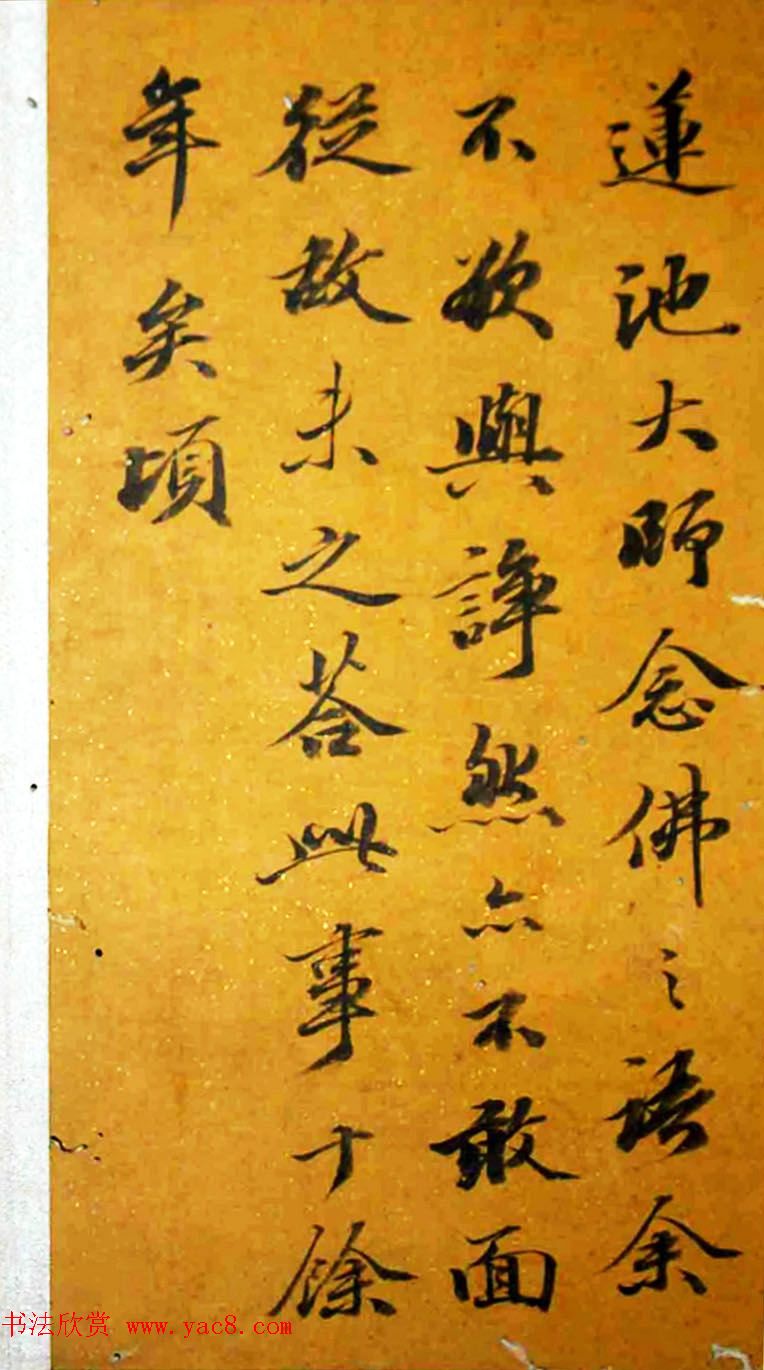 蓮池大師念佛之語余
不欲與諍然亦不敢面
從故未之荅此事十餘
年矣頃
书法欣赏 www.yac8.com